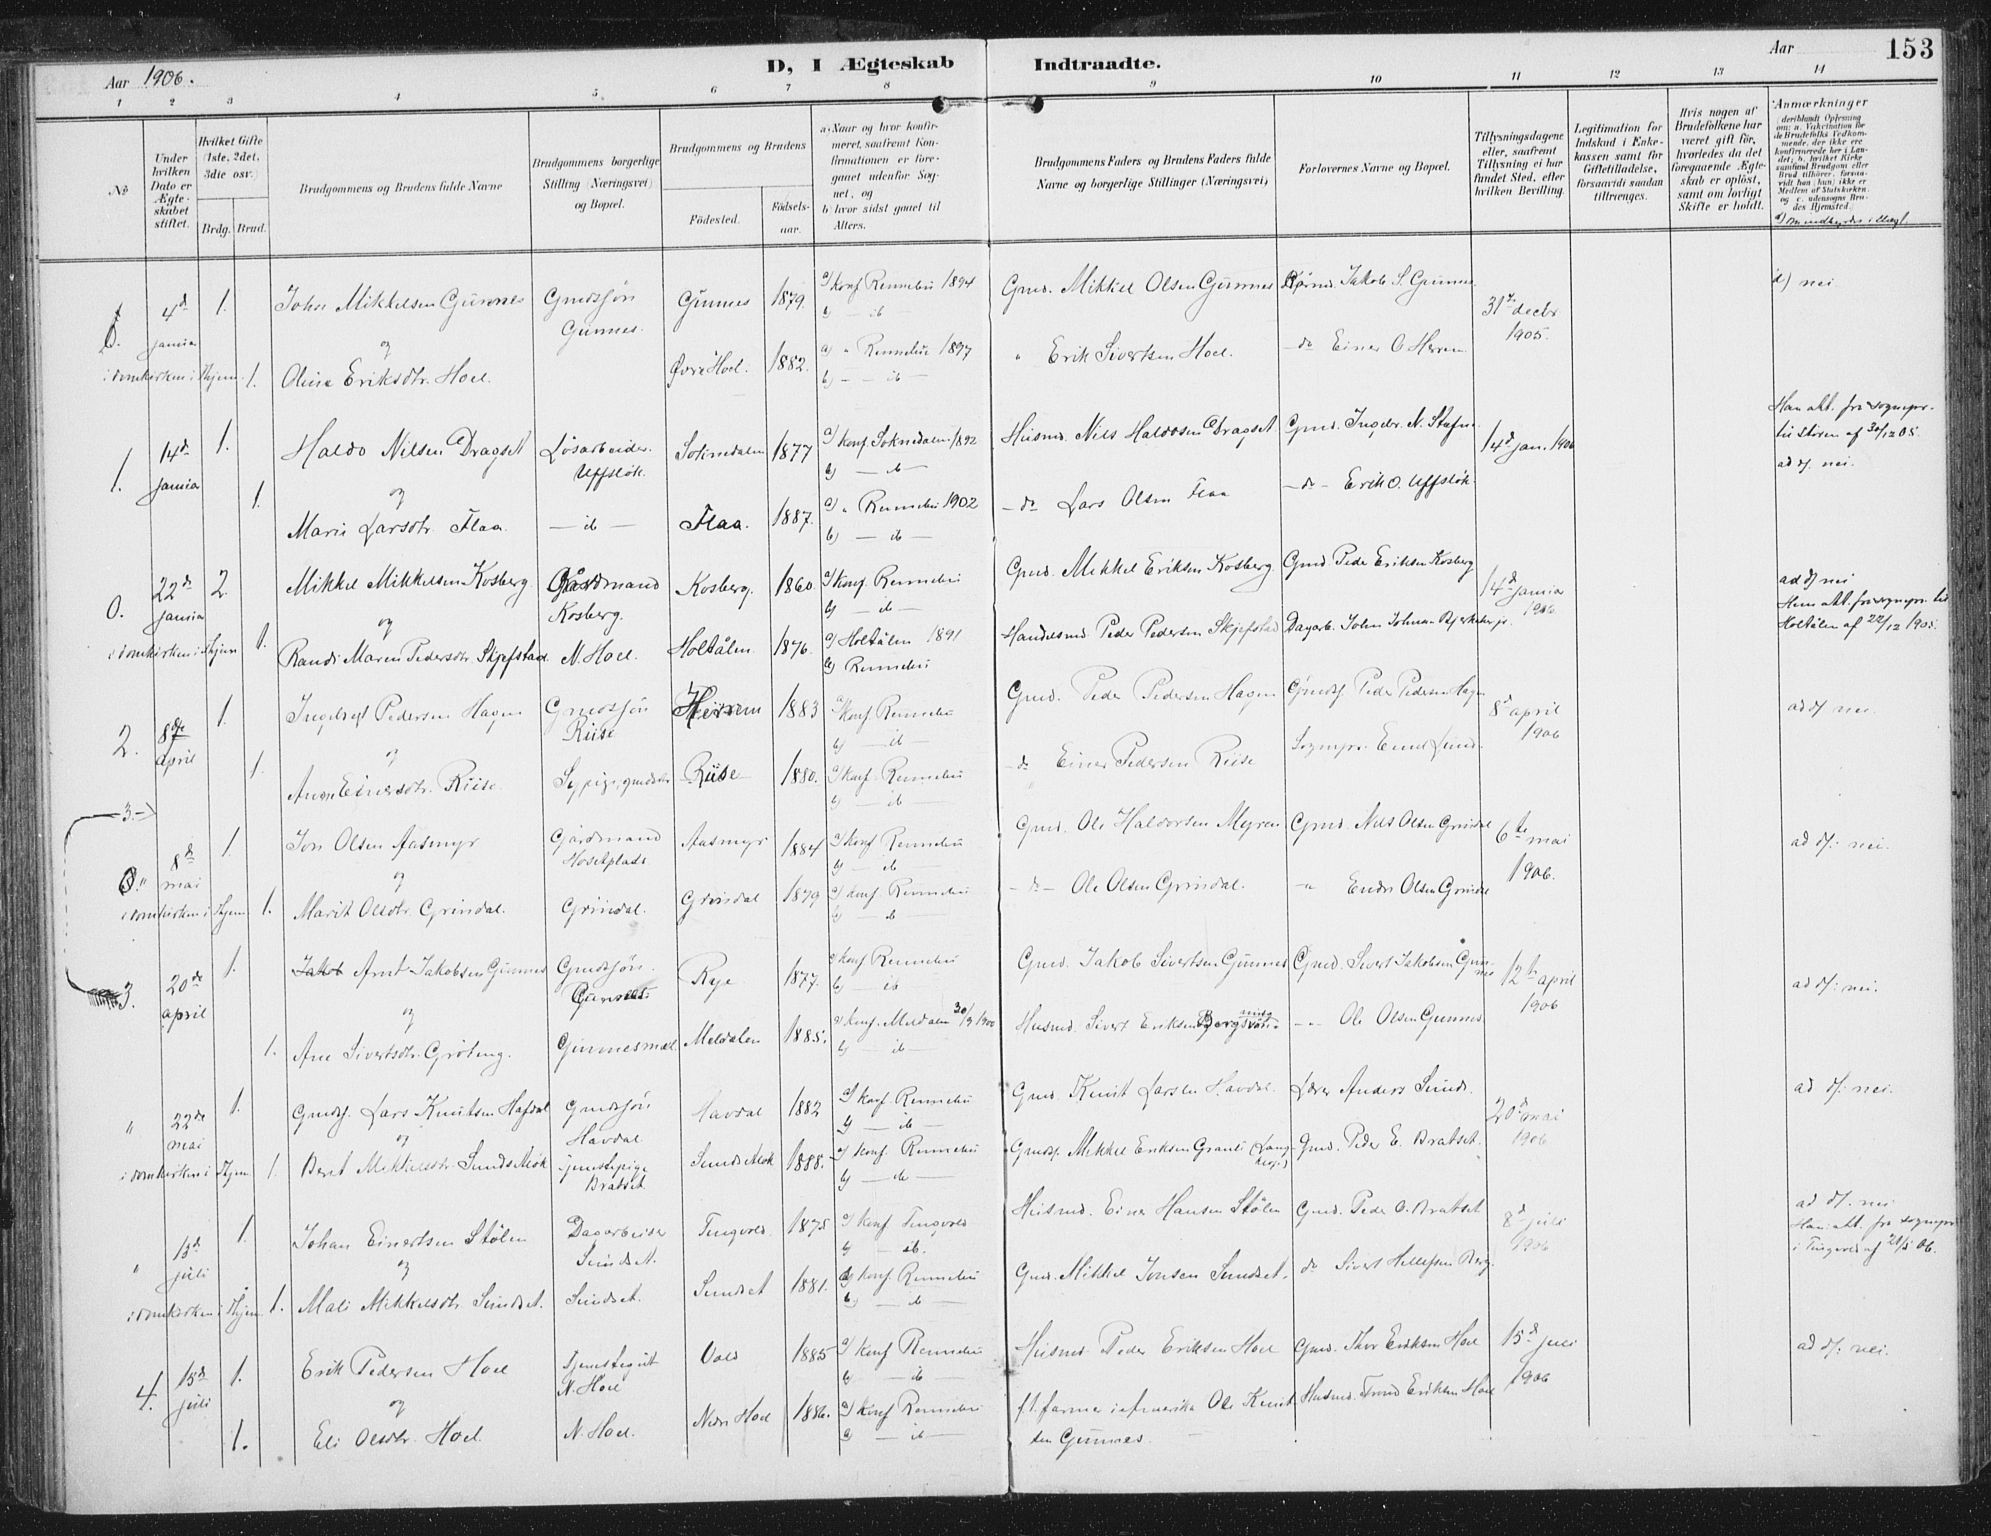 Aar 1906.
D, I Ægteskab Indtraadte.
Aar
153
1 2 3 4 5 6 7 8 9 10 11 12 13 14
No
Under hvilken Dato er Ægteskabet stiftet.
Hvilket Gifte (1ste, 2det, 3die osv.)
Brdg. Brud.
Brudgommens og Brudens fulde Navne
Brudgommens borgerlige Stilling (Næringsvei) og Bopæl.
Brudgommens og Brudens
Fødested. Fødselsaar.
a) Naar og hvor konfirmeret, saafremt Konfirmationen er foregaaet udenfor Sognet, og
b) hvor sidst gaaet til Alters.
Brudgommens Faders og Brudens Faders fulde Navne og borgerlige Stillinger (Næringsvei)
Forlovernes Navne og Bopæl.
Tillysningsdagene eller, saafremt Tillysning ei har fundet Sted, efter hvilken Bevilling.
Legitimation for Indskud i Enkekassen samt for Giftetilladelse, forsaavidt saadan tiltrænges.
Hvis nogen af Brudefolkene har været gift før, hvorledes da det foregaaende Ægteskab er opløst, samt om lovligt Skifte er holdt.
Anmærkninger
0. 4de januar 1. John Mikkelsen Gunnes Gmdssjøn Gunnes. Gunnes 1879. a) konf Rennebu 1894 b) — ib — Gmd. Mikkel Olsen Gunnes Jakob S. Gunnes 31te decbr 1905. d) nei
og
i domkirken i Thjem 1. Oline Eriksdtr. Hoel. Øvre Hoel. 1882. a) " Rennebu 1897 b) — ib — " Erik Sivertsen Hoel. — do Einer O Herrem
1. 14de januar 1. Haldo Nilsen Dragset Løsarbeider Uffsløk. Soknedalen 1877 a) konf Soknedalen 1892 b) — ib Husmd. Nils Haldosen Dragset Gmd. Ingebr. N. Stafn 14de jan. 1906 Han att. fra sognepr. til Støren af 30/12 05. ad d/. nei.
og
1. Marit Larsdtr. Flaa. — ib — Flaa. 1887. a) " Rennebu 1902 b) — ib — — do Lars Olsen Flaa — do — Erik O. Uffsløk.
0. 22de januar 2. Mikkel Mikkelsen Kosberg Gårdmand Kosberg. Kosberg. 1860. a) konf. Rennebu b) — ib — Gmd. Mikkel Eriksen Kosberg Gmd. Peder Eriksen Kosberg 14de januar 1906 ad d/ nei
og
i domkirken i Thjem 1. Randi Maren Pedersdtr Skjefstad N. Hoel. Holtålen 1876. a) Holtålen 1891 b) Rennebu Handelsmd. Peder Pedersen Skjefstad Dagarb. John Johnsen jr. Hun att. fra sognepr. til Holtålen af 22/12 1905.
2. 8de april 1. Ingebrigt Pedersen Hagen Gmdssjøn Riise Herrem 1883 a) konf Rennebu b) — ib — Gmd. Peder Pedersen Hagen Gmdsf. Peder Pedersen Hagen 8de april 1906 ad d/ nei.
og
1. Anne Einersdtr. Riise. Sypige, gmdsdtr Riise 1880. a) konf. Rennebu b) — ib — — do Einer Pedersen Riise Sognepr. Lund.
3. →
0. " 8de mai 1. Jon Olsen Aasmyr Gårdmand Hosetplads Aasmyr 1884 a) konf Rennebu b) — ib Gmd. Ole Haldorsen Myren Gmd. Nils Olsen Grindal 6te mai 1906. ad d/: nei.
og
i domkirken i Thjem 1. Marit Olsdtr. Grindal. Grindal. Grindal 1879 a) konf Rennebu b) — ib — do — Ole Olsen Grindal. " Endre Olsen Grindal
3. 20de april 1. Jakob Arnt Jakobsen Gunnes Gmdssjøn. Gunnes: Rye 1877. a) konf Rennebu b) — ib — Gmd. Jakob Sivertsen Gunnes Gmd. Sivert Jakobsen Gunnes 12te april 1906 ad d/: nei.
og
1. Ane Sivertsdtr. Grøting. Gunnesmæl. Meldalen 1885. a) konf. Meldalen 30/9 1900 b) — ib — Husmd. Sivert Eriksen — " — Ole Olsen Gunnes
" 22de mai 1. Gmdsf. Lars Knutsen Hafdal Gmdssjøn Havdal Havdal 1882 a) konf Rennebu b) — ib — Gmd. Knut Larsen Havdal. Lærer Anders Sunds. 20de mai 1906 ad d/: nei.
og
i domkirken i Thjem 1. Beret Mikkelsdtr. Sundsmok tjenestepige Bratset. Sundsmok 1888. a) konf Rennebu b) — ib — Gmdsf. Mikkel Eriksen Granli Gmd. Peder E. Bratset.
" 13de juli 1. Johan Einertsen Stølen Dagarbeider Sundset. Tingvold 1875 a) konf Tingvold b) — ib. Husmd. Einer Hansen Stølen Gmd. Peder O. Bratset 8de juli 1906 ad d/. nei Han: att. fra sognepr i Tingvold af 28/5 06.
og
i domkirken i Thjem 1. Mali Mikkelsdtr Sundset. Sundset. Sundset 1881. a) konf. Rennebu b) — ib — Gmd. Mikkel Jonsen Sundset. do Sivert Hellefsen Berg.
4. 15de juli 1. Erik Pedersen Hoel Tjenestegut N. Hoel Vold 1885 a) konf Rennebu b) — ib — Husmd Peder Eriksen Hoel Gmd. Thor Eriksen Hoel 15de juli 1906 ad d/: nei.
og
1. Eli Olsdtr. Hoel. N. Hoel. Nedre Hoel 1886. a) konf Rennebu b) — ib — f.t. farmer i Amerika Ole Knutsen Gunnes. Husmd. Trond Eriksen Hoel